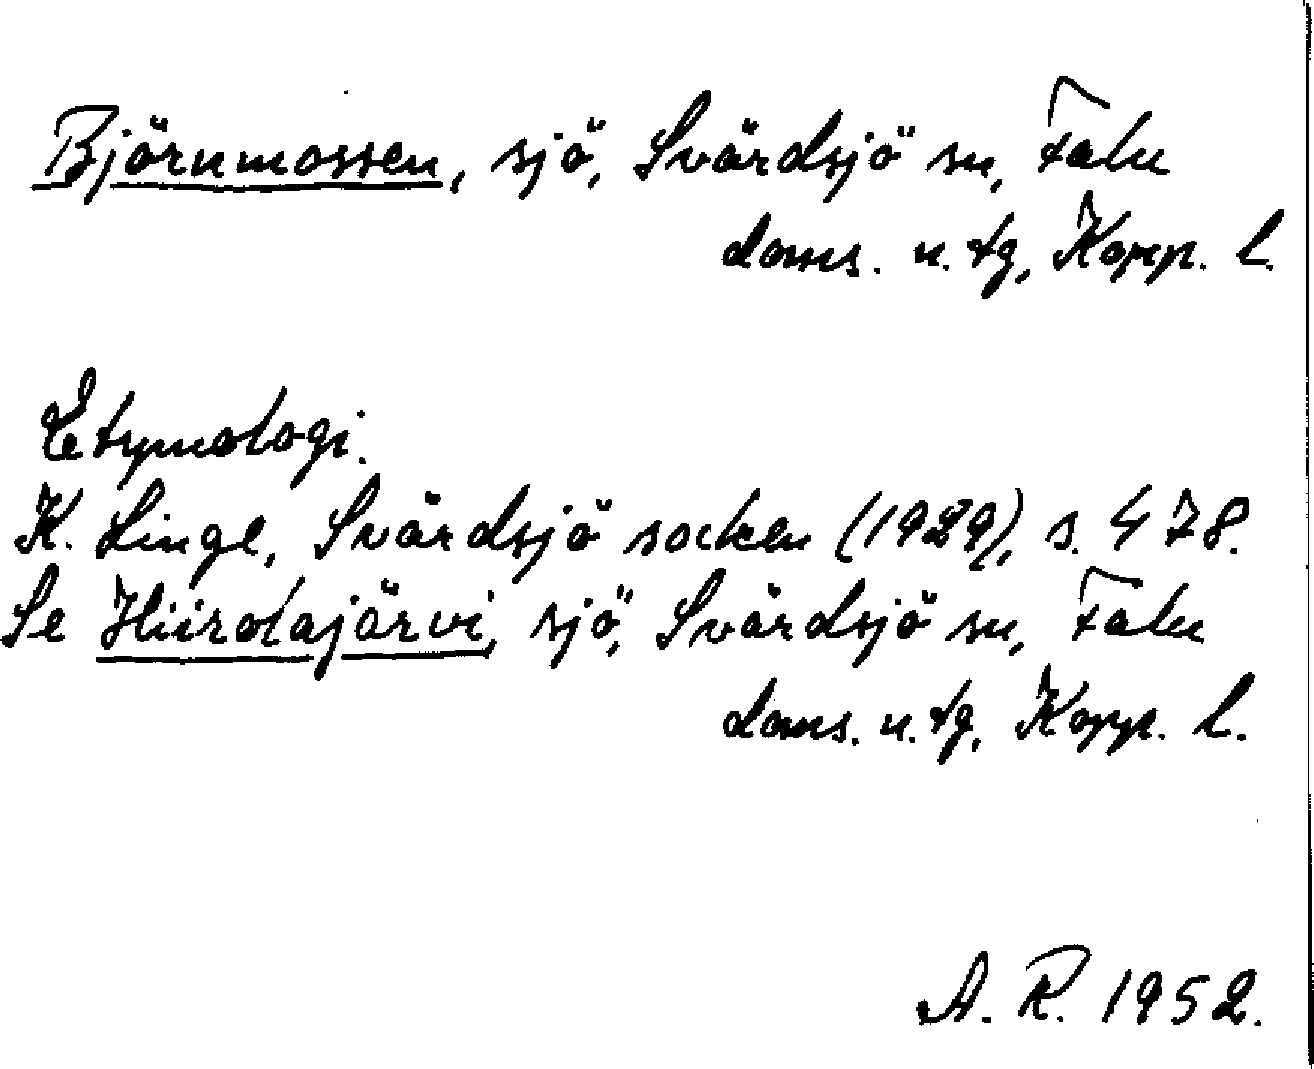 Björnmossen, sjö, Svärdsjö sn, Falu
doms. n. tg, Kopp. l.
Etymologi.
K. Linge, Svärdsjö socken (1929), s. 478.
Se Hiirolajärvi, sjö, Svärdsjö sn, Falu
doms. n. tg, Kopp. l.
A. R. 1952.